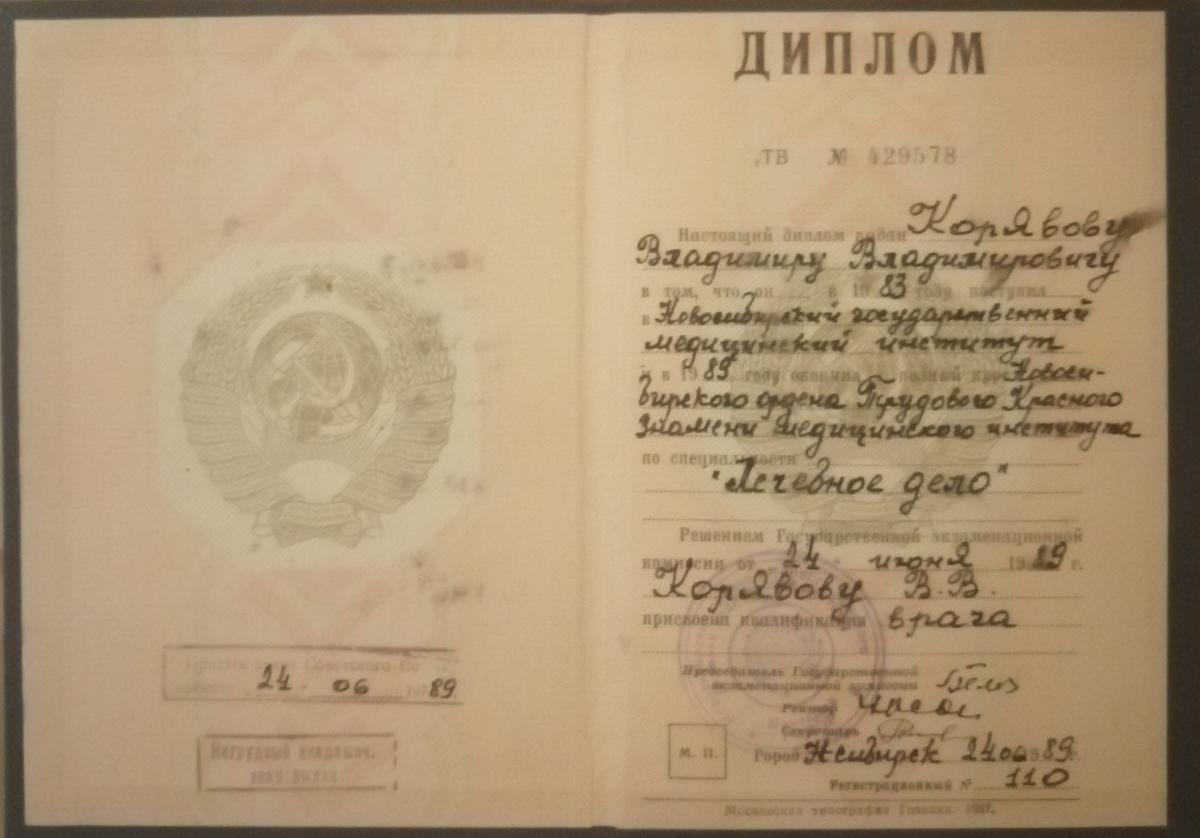 ДИПЛОМ
ТВ № 429578
Настоящий диплом выдан Корявову
Владимиру Владимировичу
в том, что он в 1983 году поступил
в Новосибирский государственный
медицинский институт
и в 1989 году окончил полный курс Новоси-
бирского ордена Трудового Красного
Знамени медицинского института
по специальности
"Лечебное дело"
Решением Государственной экзаменационной
комиссии от "24" июня 1989 г.
Корявову В. В.
присвоена квалификация врача
Председатель Государственной
экзаменационной комиссии
Ректор
Секретарь
М. П.
Город Нсибирск 24 06 1989 г.
Регистрационный № 110
Московская типография Гознака. 1987.
Советского
24 06 1989
Нагрудный
знак выдан